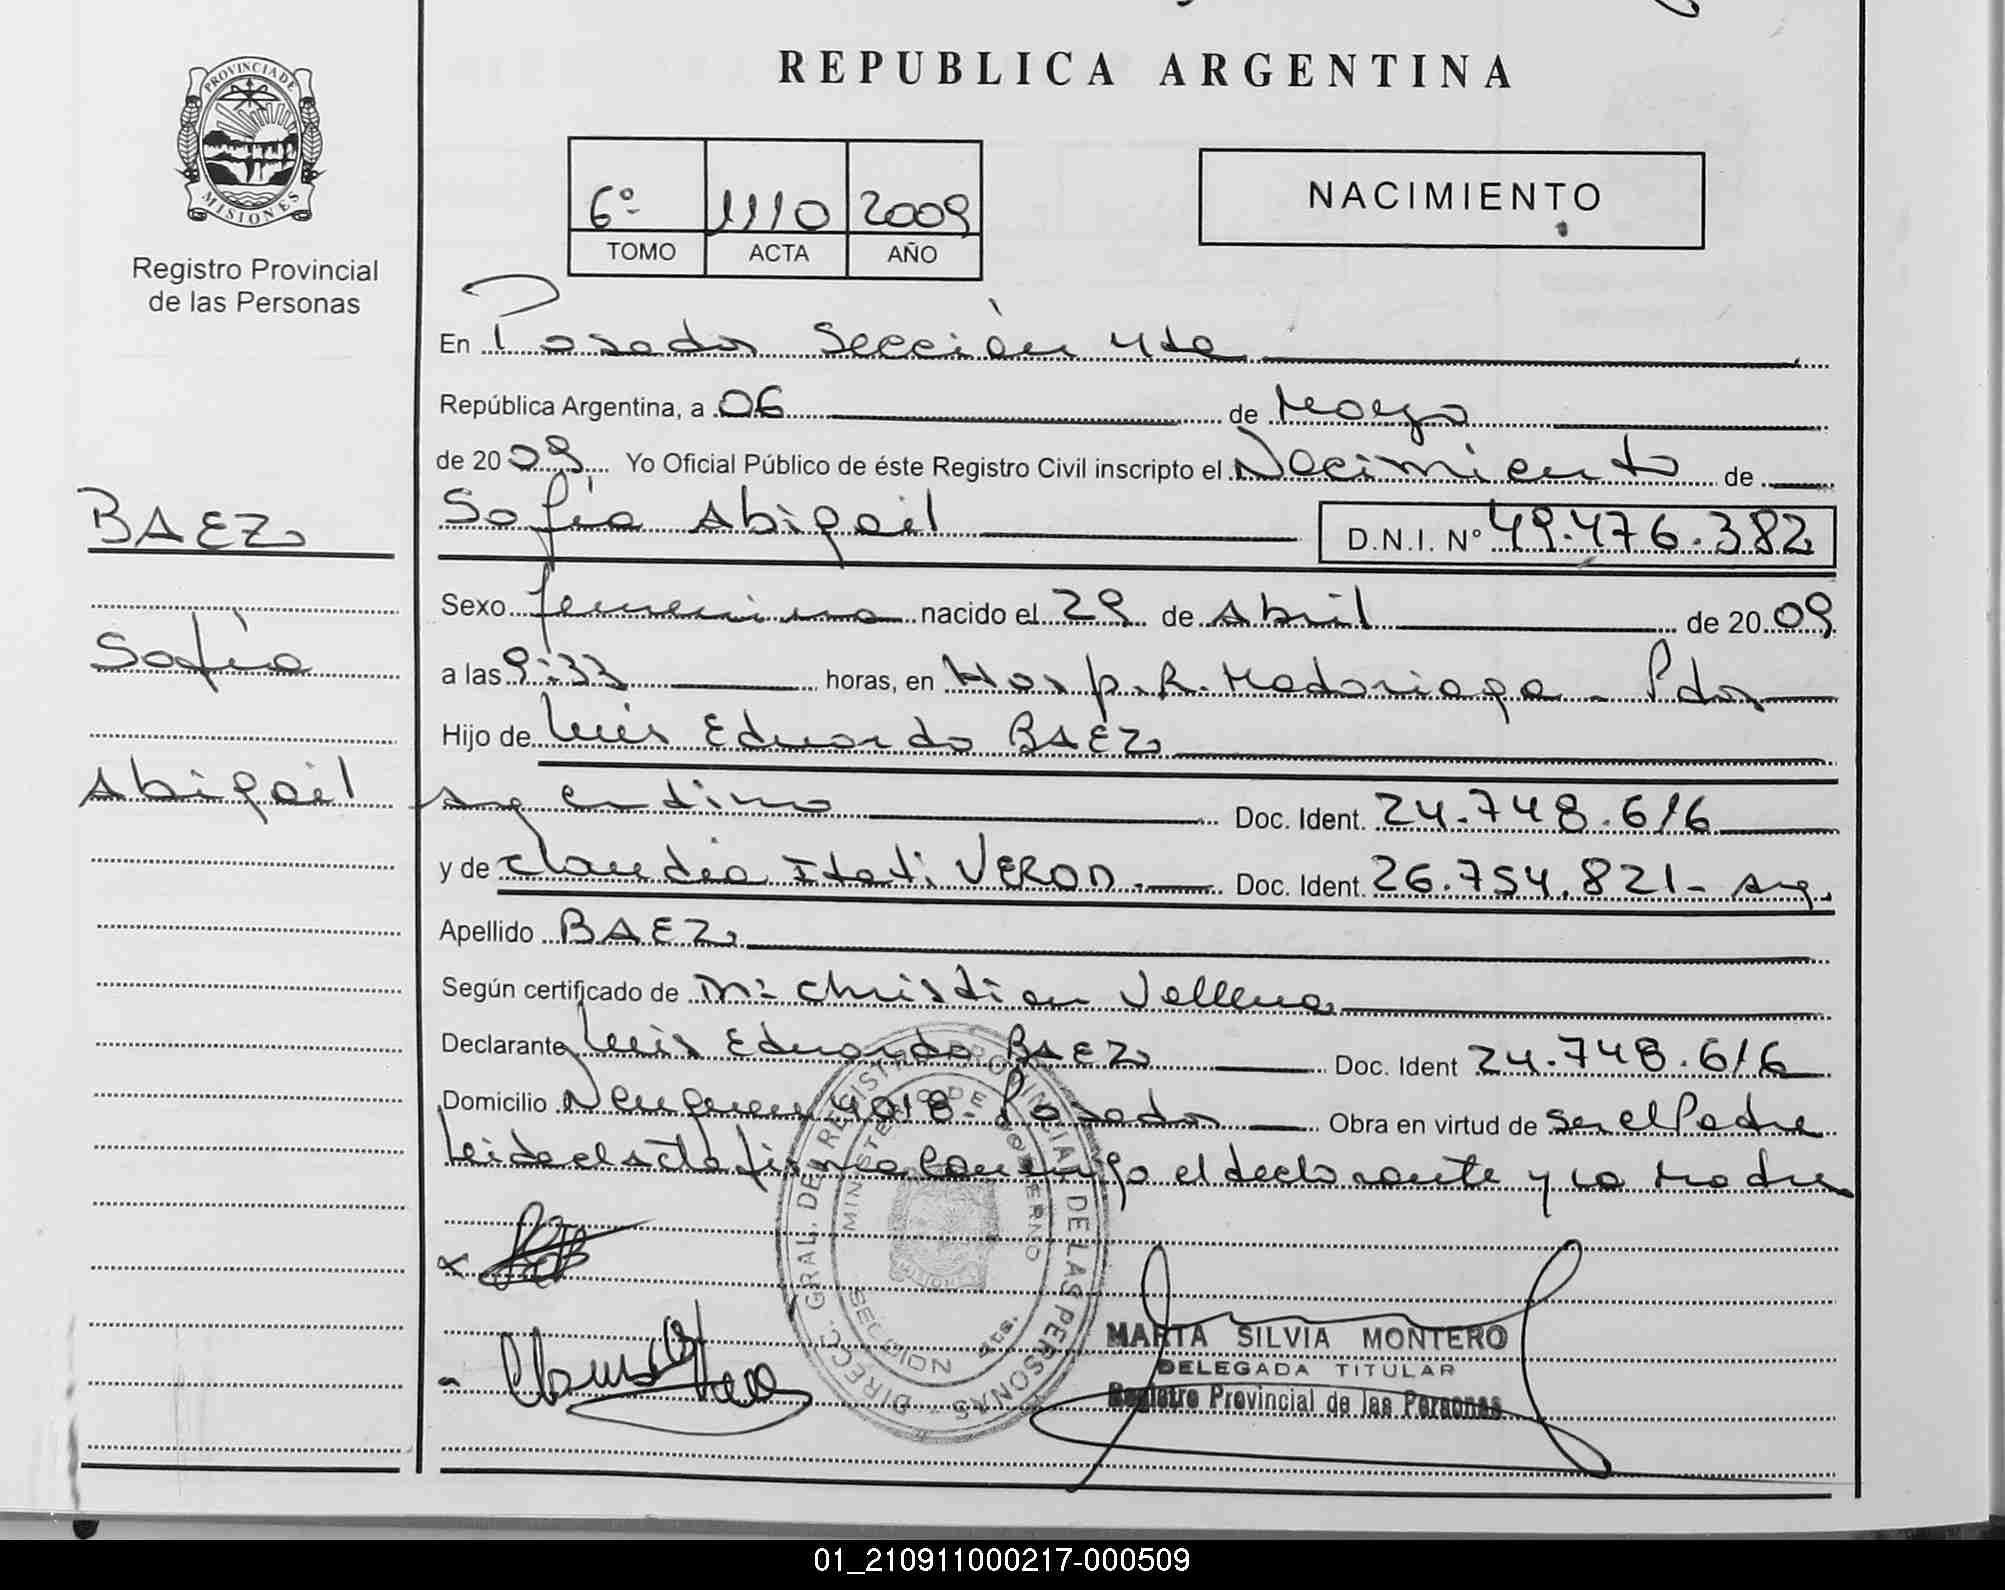 REPUBLICA ARGENTINA
PROVINCIA DE
MISIONES
Registro Provincial
de las Personas
6º 1110 2009
TOMO ACTA AÑO
NACIMIENTO
En Posadas Sección 4ta
República Argentina, a 06 de Mayo
de 2009 Yo Oficial Público de éste Registro Civil inscripto el Nacimiento de
BAEZ
Sofía Abigail D.N.I. Nº 49.476.382
Sexo femenino nacido el 29 de Abril de 2009
Sofía
a las 9:33 horas, en Hosp. R. Madariaga - Pdas
Hijo de Luis Eduardo BAEZ
Abigail
Argentino Doc. Ident. 24.748.616
y de Claudia Itatí VERON. Doc. Ident. 26.754.821- Arg.
Apellido BAEZ
Según certificado de Christian
Declarante Luis Eduardo BAEZ Doc. Ident 24.748.616
Domicilio Neuquen 4018- Posadas Obra en virtud de ser el Padre
Leida el acta firma conmigo el declarante y la Madre
DIRECC. GRAL. DE REGISTRO PROVINCIAL DE LAS PERSONAS
MINISTERIO DE GOBIERNO
SECCION 4ta.
MARTA SILVIA MONTERO
DELEGADA TITULAR
Registro Provincial de las Personas
01_210911000217-000509